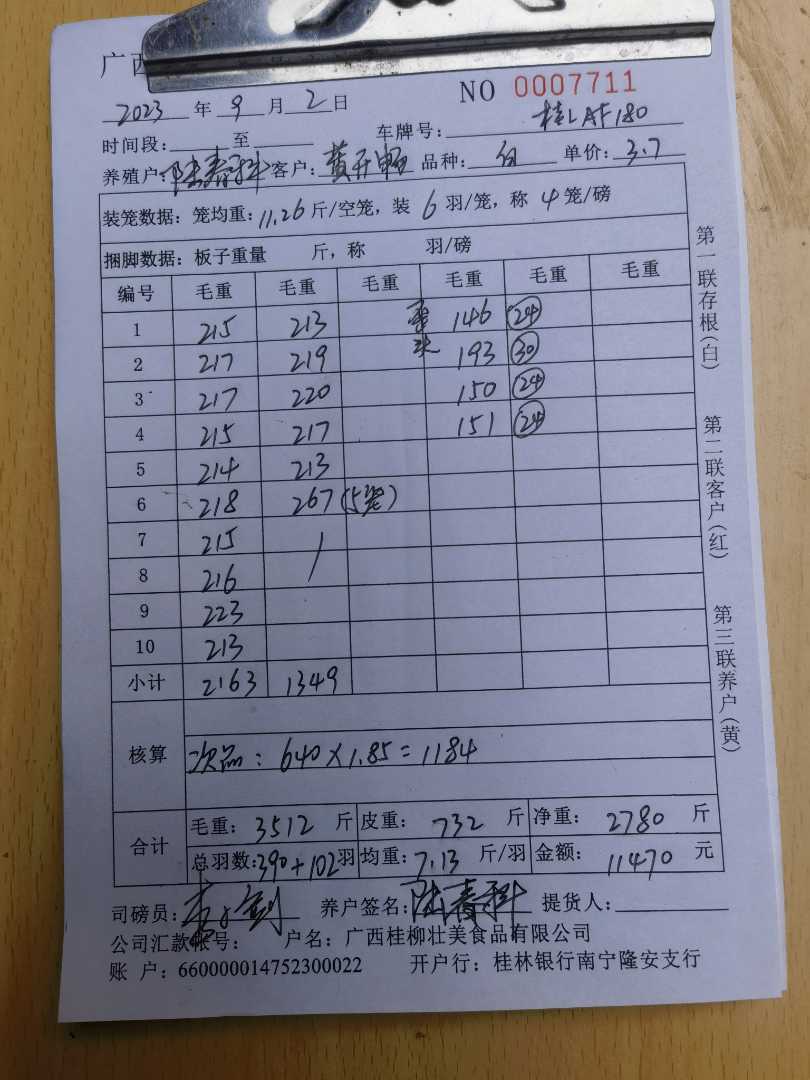 广西
NO 0007711
2023 年 9 月 2 日
时间段: 至 车牌号: 桂LAF180
养殖户: 陆春科 客户: 黄开畅 品种: 白 单价: 3.7
装笼数据: 笼均重: 11.26 斤/空笼, 装 6 羽/笼, 称 4 笼/磅
捆脚数据: 板子重量 斤, 称 羽/磅
编号 毛重 毛重 毛重 毛重 毛重 毛重
1 215 213 146 (24)
2 217 219 193 (30)
3 217 220 150 (24)
4 215 217 151 (24)
5 214 213
6 218 267 (5笼)
7 215 /
8 216
9 223
10 213
小计 2163 1349
核算 次品: 640×1.85=1184
合计 毛重: 3512 斤 皮重: 732 斤 净重: 2780 斤
总羽数: 390+102 羽 均重: 7.13 斤/羽 金额: 11470 元
司磅员: 养户签名: 陆春科 提货人:
公司汇款帐号: 户名: 广西桂柳壮美食品有限公司
账 户: 660000014752300022 开户行: 桂林银行南宁隆安支行
第一联存根(白)
第二联客户(红)
第三联养户(黄)